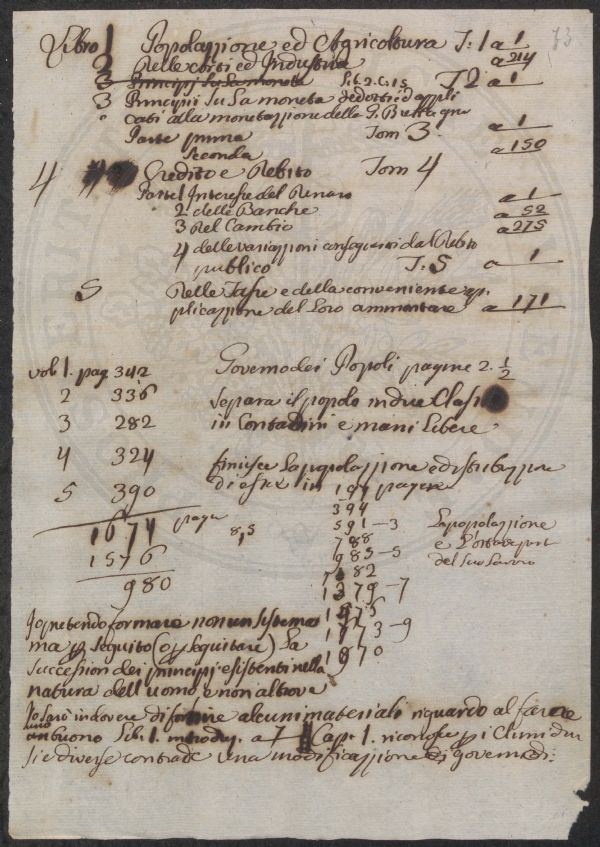 73
Libro 1 Popolazzione ed Agricoltura T. 1 a 1
2 Delle corti ed Industria a 214
3 Principj Su La moneta Lib. 2. C. 15 T 2 a 1
3 Principii Su La moneta dedotti ed appli
cati alla monetazzione della G. Brettagna
Parte prima Tom 3. a 1
Seconda a 150
4 Credito e Debito Tom 4
Parte 1 Interesse del Denaro a 1
2 delle Banche a 52
3 Del Cambio a 275
4 delle variazzioni conseguenti dal Debito
publico T. 5 a 1
5 Delle Tasse e della conveniente ap
plicazzione del Loro ammontare a 171
vol. 1. pag. 342
2 336
3 282
4 324
5 390
1674 pagine
1576
980
8,5
Governo dei Popoli pagine 2. 1/2
separa il popolo in due Classi
in Contadini e mani Libere
finisce La popolazzione e distribuzzione
di essa in 197 pagine
394
591 — 3
788
985 — 5
1182
1379 — 7
1576
1773 — 9
1970
La popolazzione
e
del Suo Lavoro
Io pretendo formare non un sistema
ma seguito (o proseguitare) La
succession dei principj esistenti nella
natura dell uomo, e non altrove
Io sarò in dovere di fornire alcuni materiali riguardo al farne
un buono Lib. 1. introduz. a 7 Cap. 1. riconosce
si e diverse contrade una modificazzione di governo di: